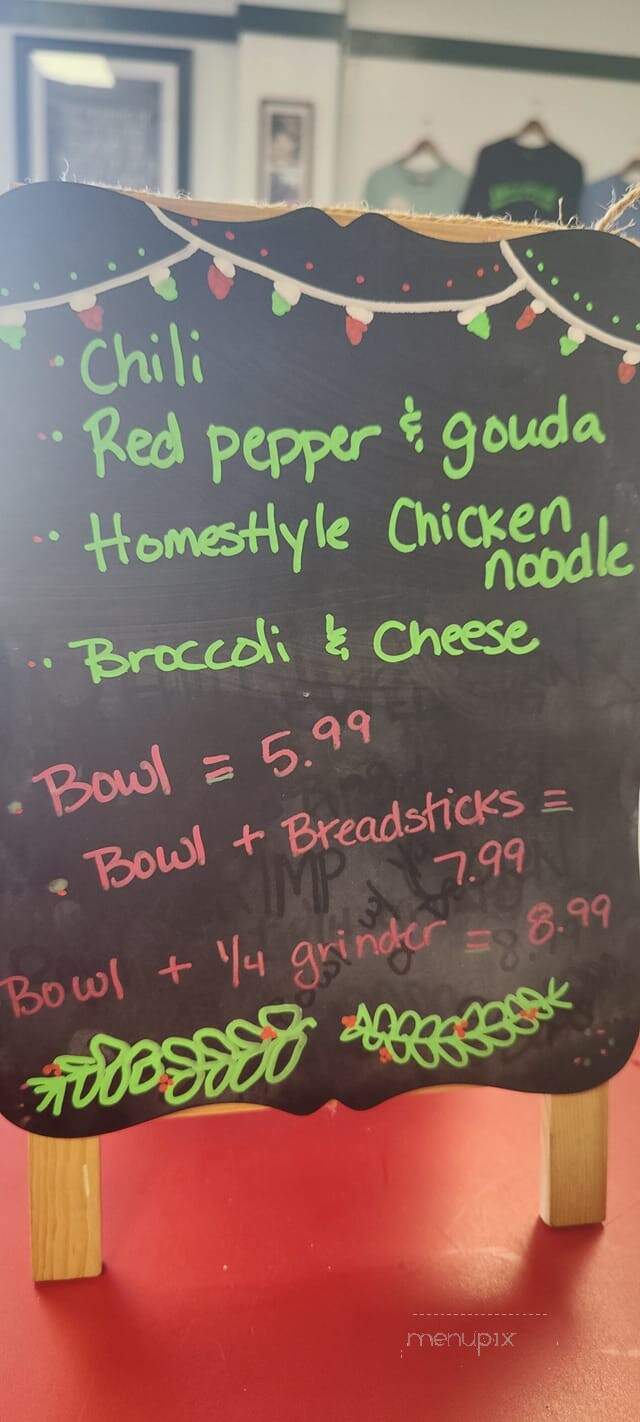 Chili
Red pepper & gouda
Homestyle Chicken
noodle
Broccoli & Cheese
Bowl = 5.99
Bowl + Breadsticks =
7.99
Bowl + 1/4 grinder = 8.99
menupix